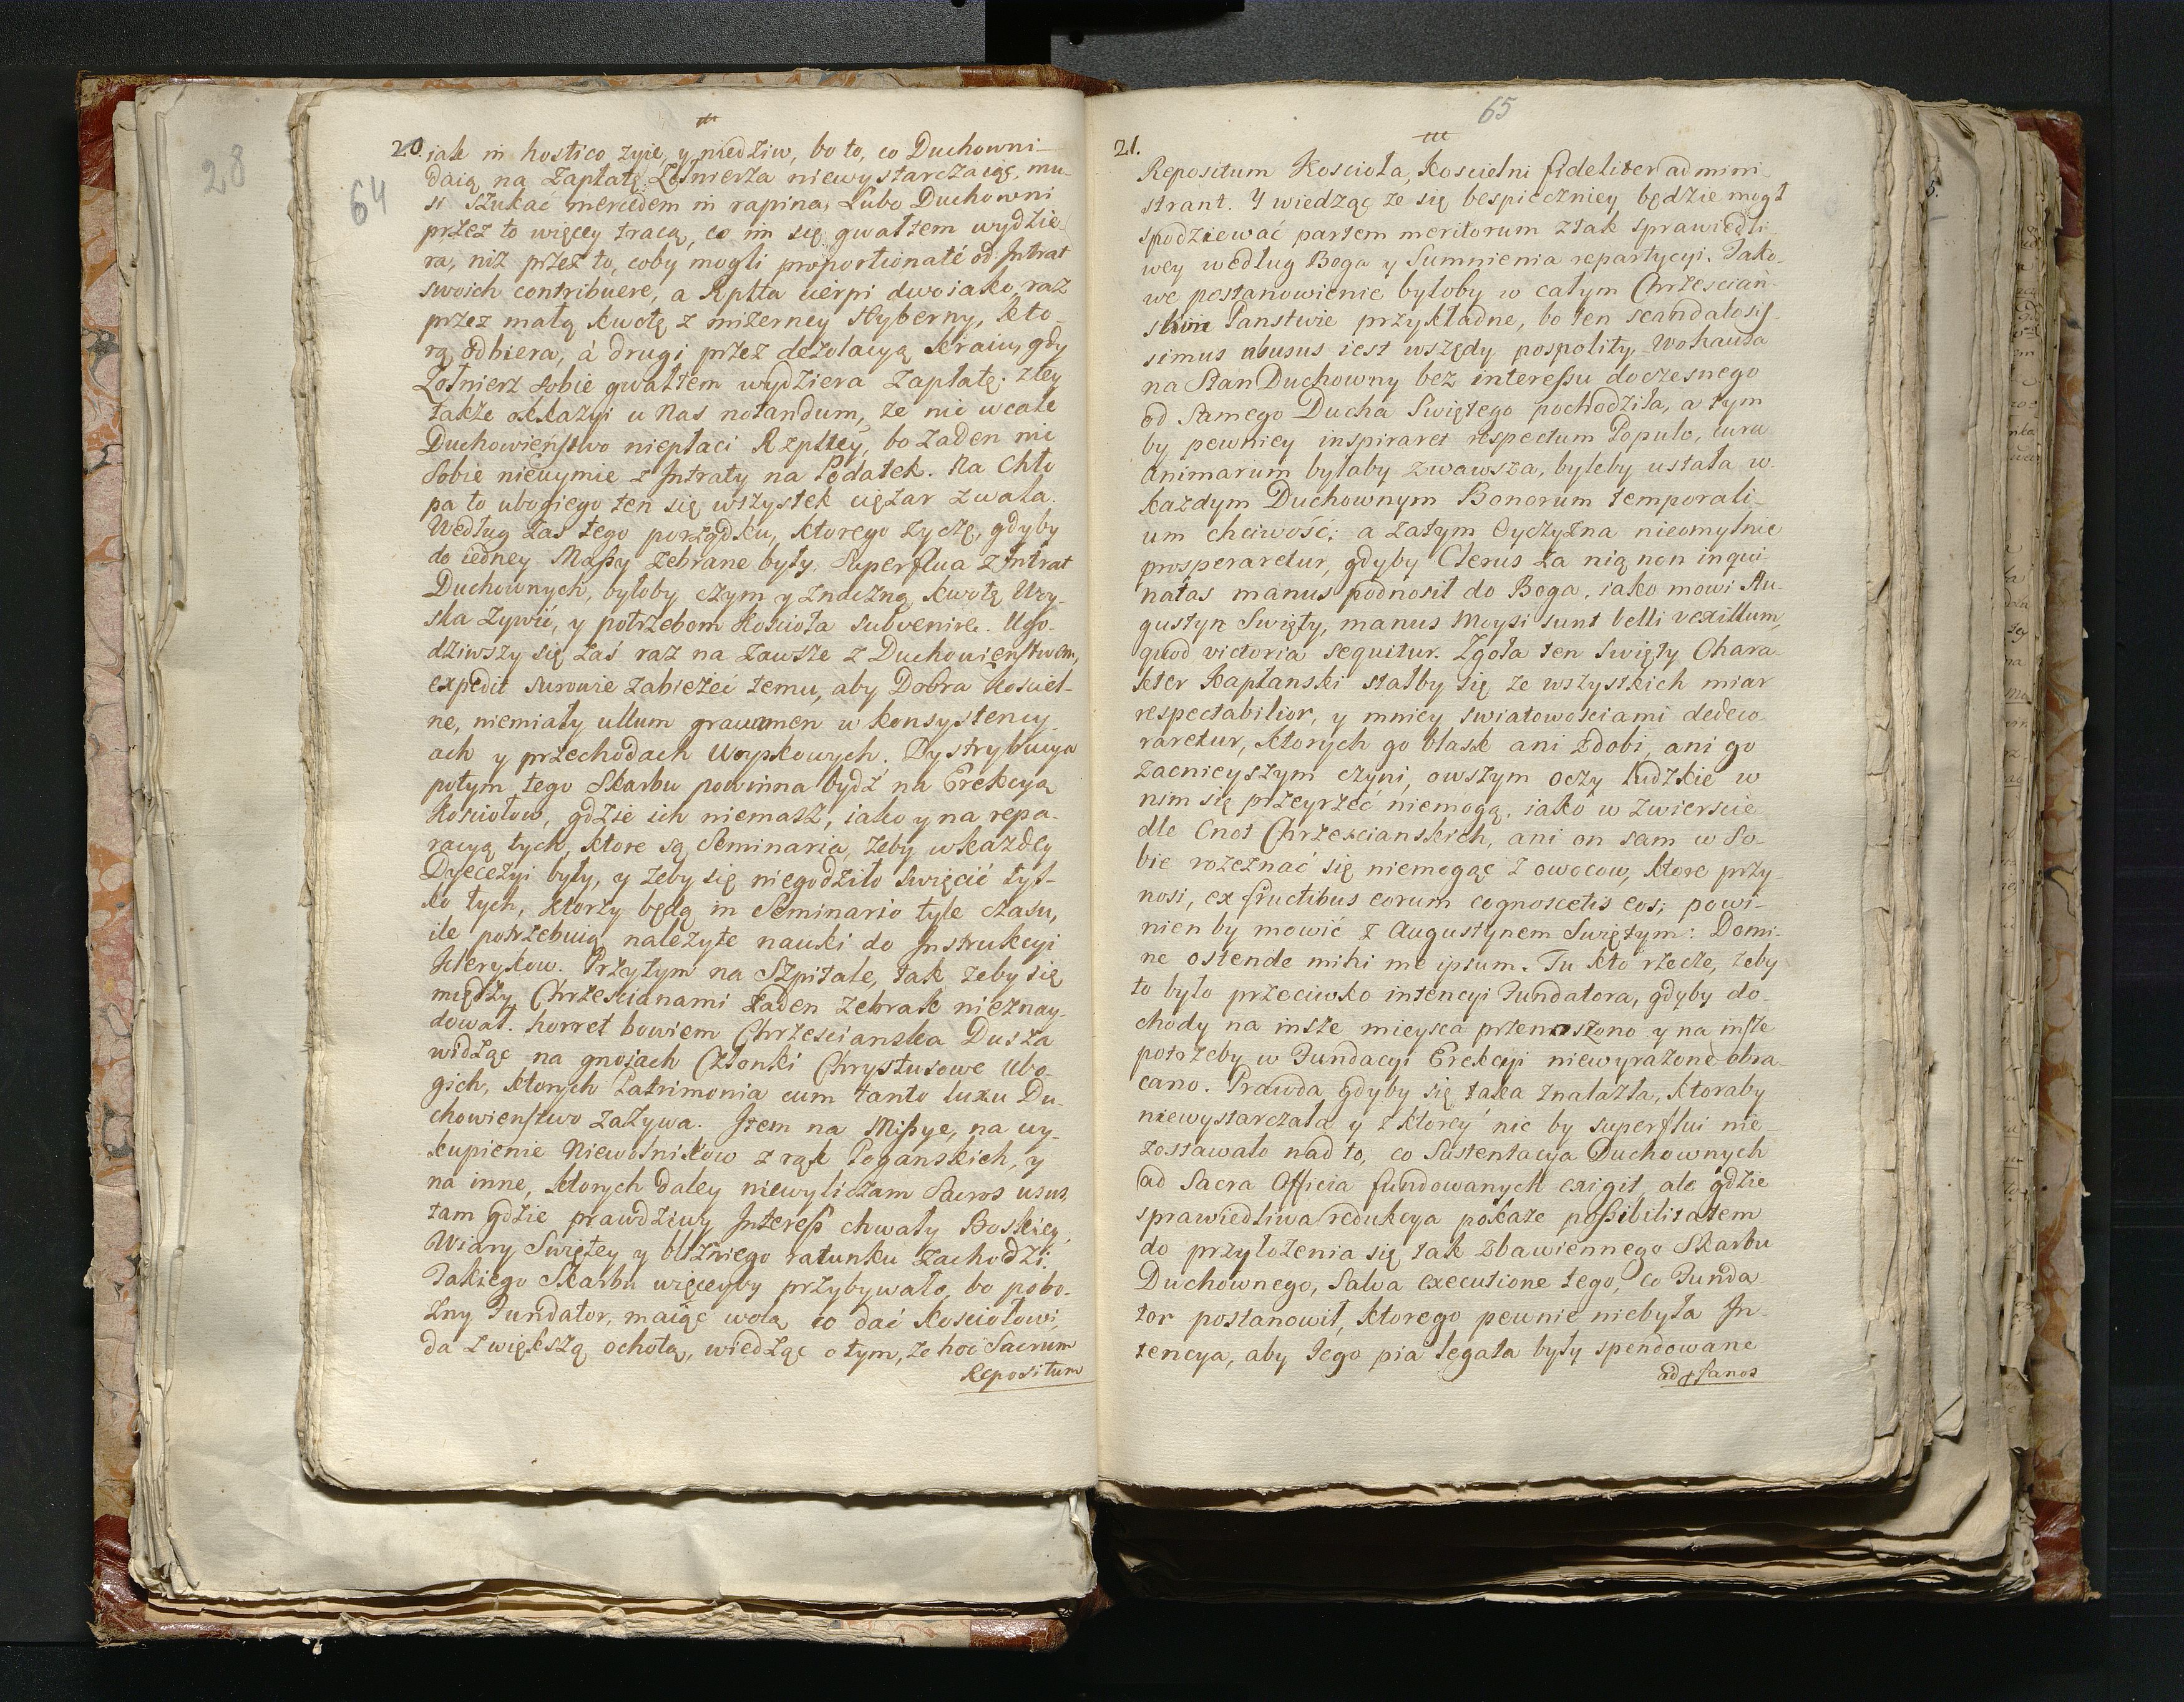 28
64
20.
iak in hostico żyie, y niedziw, bo to, co Duchowni
daią na Zapłatę Zołnierza niewystarczaiąć, mu-
si szukać mercedem in rapina, Lubo Duchowni
przez to więcey tracą, co im się gwałtem wydzie-
ra, niż przez to, coby mogli proportionaté od Intrat
swoich contribuere, a Rptta cierpi dwoiako, raz
przez małą kwotę z mizerney Hyberny, kto-
rą odbiera, á drugi przez dezolacyą kraiu, gdy
Zołnierz sobie gwałtem wydziera Zapłatę. z tey
także okkazyi u Nas notandum, że nic wcale
Duchowieństwo niepłaci Rzpltey, bo żaden nic
sobie nieuymie z Intraty na Podatek. Na Chło
pa to ubogiego ten się wszystek ciężar zwala.
Według zas tego porządku, ktorego życzę, gdyby
do iedney Massy zebrane były Superflua z Intrat
Duchownych, byłoby czym y znaczną kwotę Woy-
ska żywić, y potrzebom Kościoła subvenire. Ugo-
dziwszy się zaś raz na zawsze z Duchowieństwem,
expedit surowie zabieżeć temu, aby Dobra Kosciel-
ne, niemiały ullum gravamen w konsystency-
ach y przechodach Woyskowych. Dystrybucya
potym tego Skarbu powinna bydź na Erekcyą
Kosciołow, gdzie ich niemasz, iako y na repa-
racyą tych, ktore są Seminaria, żeby w każdey
Dyecezyi były, y żeby się niegodziło swięcić tyl-
ko tych, ktorzy będą in Seminario tyle czasu,
ile potrzebuią należyte nauki do Instrukcyi
Klerykow. Przytym na Szpitale, tak żeby się
między Chrzescianami żaden żebrak nieznay-
dował. horret bowiem Chrzescianska Dusza
widząc na gnoiach Członki Chrystusowe Ubo-
gich, ktorych Patrimonia cum tanto luxu Du-
chowieństwo zażywa. Item na Missye, na wy-
kupienie Niewolnikow z rąk Pogańskich, y
na inne, ktorych daley niewyliczam Sacros usus,
tam gdzie prawdziwy Interess chwały Boskiey,
Wiary Swiętey y bliźniego ratunku zachodzi.
Takiego Skarbu więceyby przybywało, bo pobo-
żny Fundator, maiąc wolą co dać Kosciołowi,
da z większą ochotą, wiedząc o tym, że hoc Sacrum
Repositum
65
21.
Repositum Kościoła, Koscielni fideliter admini-
strant. Y wiedząc że się bespieczniey będzie mogł
spodziewać partem meritorum z tak sprawiedli-
wey według Boga y Sumnienia repartycyi. Tako-
we postanowienie byłoby w całym Chrzescian-
skim Panstwie przykładne, bo ten scandalosis-
simus abusus iest wszędy pospolity, Wokacya
na Stan Duchowny bez interessu doczesnego
od samego Ducha Swiętego pochodziła, a tym
by pewniey inspiraret respectum Populo, cura
animarum byłaby zwawsza, byleby ustała w
każdym Duchownym Bonorum temporali-
um chciwość; a zatym Oyczyzna nieomylnie
prosperaretur, gdyby Clerus za nią non inqui-
natas manus podnosił do Boga, iako mowi Au-
gustyn Swięty, manus Moysi sunt belli vexillum,
quod victoria sequitur. Zgoła ten Swięty Chara-
kter Kapłanski stałby się ze wszystkich miar
respectabilior, y mniey swiatowościami dedeco-
raretur, ktorych go blask ani zdobi, ani go
zacnieyszym czyni, owszym oczy ludzkie w
nim się przeyrzeć niemogą, iako w zwierscie
dle Cnot Chrzescianskich, ani on sam w so-
bie rozeznać się niemogąc z owocow, ktore przy-
nosi, ex fructibus eorum cognoscetis eos; powi-
nien by mowić z Augustynem Swiętym: Domi-
ne ostende mihi me ipsum. Tu kto rzecze, żeby
to było przeciwko intencyi Fundatora, gdyby do-
chody na insze mieysca przenoszono y na insze
potrzeby w Fundacyi Erekcyi niewyrażone obra-
cano. Prawda gdyby się taka znalazła, ktoraby
niewystarczała y z ktorey nic by superflui nie-
zostawało nad to, co Sustentacya Duchownych
ad Sacra Officia fundowanych exigit, ale gdzie
sprawiedliwa redukcya pokaże possibilitatem
do przyłożenia się tak zbawiennego Skarbu
Duchownego, salva executione tego, co Funda-
tor postanowił, ktorego pewnie niebyła In-
tencya, aby Iego pia legata były spendowane
ad profanos